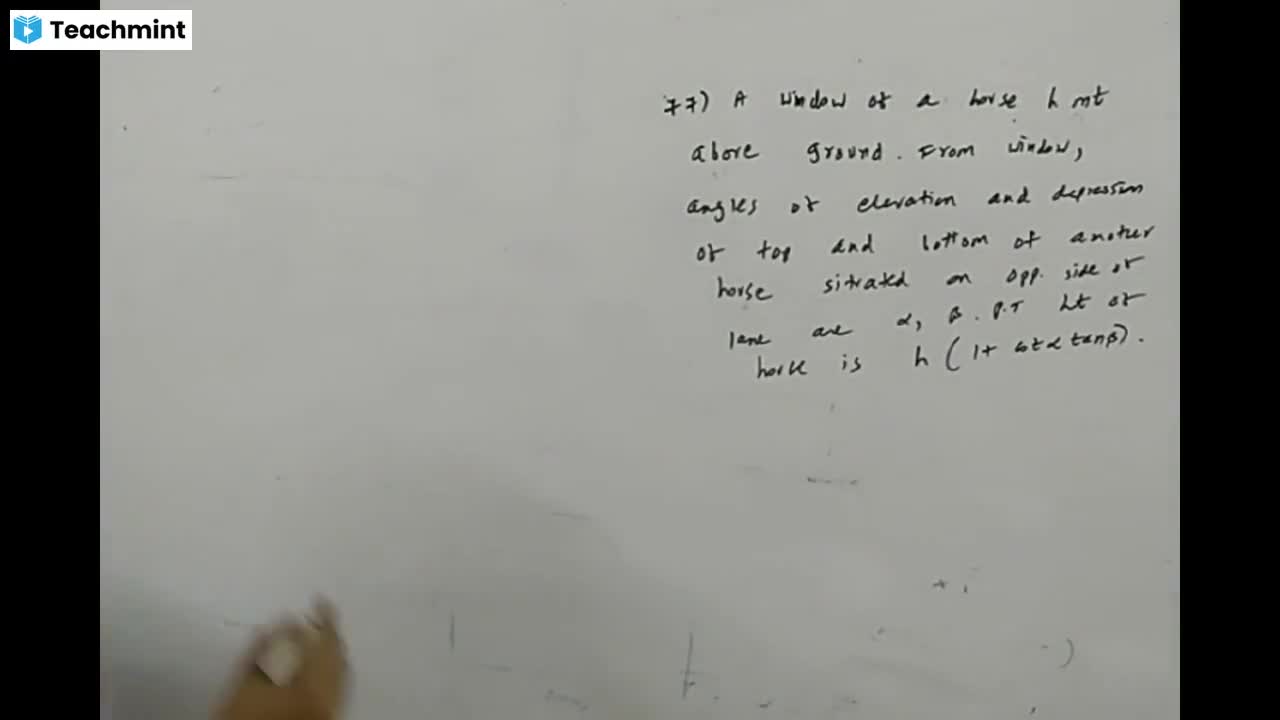 Teachmint
77) A window of a house h mt
above ground. From window,
angles of elevation and depression
of top and bottom of another
house situated on opp. side of
lane are α, β. P.T ht of
house is h (1+ cotα tanβ).